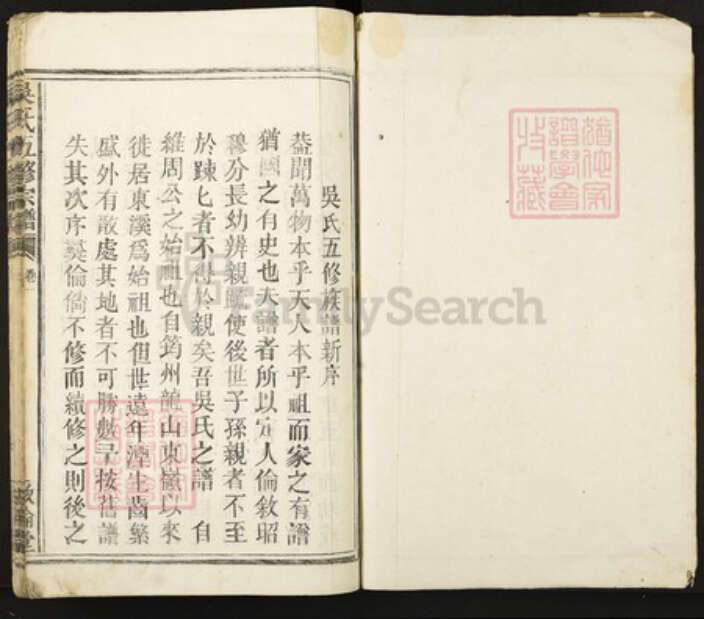 吳氏五修族譜新序
蓋聞萬物本乎天人本乎祖而家之有譜
猶國之有史也夫譜者所以定人倫敘昭
穆分長幼辨親疎使後世子孫親者不至
於踈匕者不得於親矣吾吳氏之譜 自
維周公之始祖也自筠州龍山東嶽以來
徙居東溪爲始祖也但世遠年湮生齒繁
盛外有散處其地者不可勝數早按舊譜
失其次序彝倫倘不修而續修之則後之
吳氏五修宗譜
卷一
敘倫堂
FamilySearch